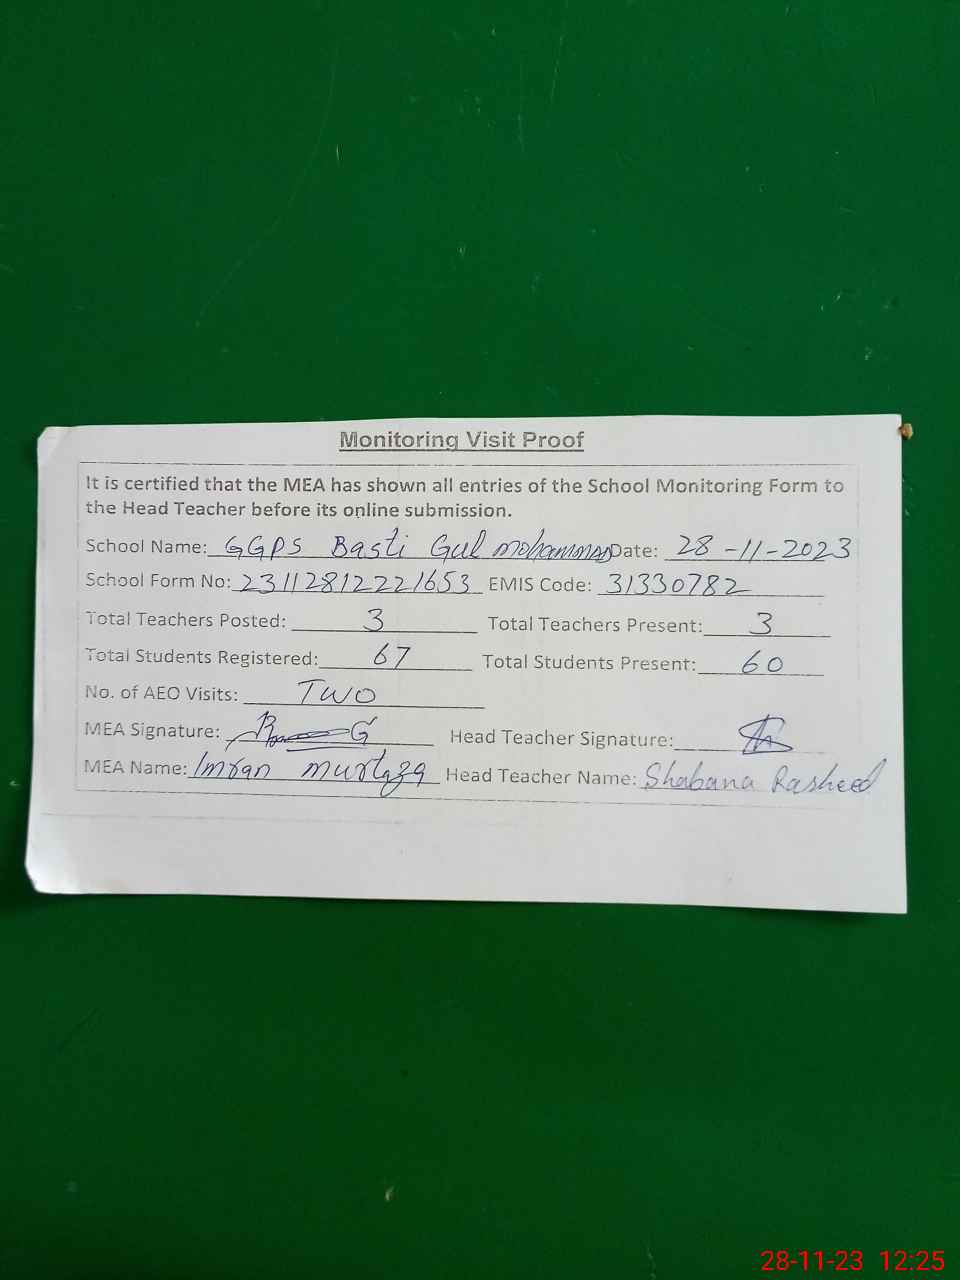 Monitoring Visit Proof
It is certified that the MEA has shown all entries of the School Monitoring Form to
the Head Teacher before its online submission.
School Name: GGPS Basti Gul mohammad Date: 28-11-2023
School Form No: 231128122221653 EMIS Code: 31330782
Total Teachers Posted: 3 Total Teachers Present: 3
Total Students Registered: 67 Total Students Present: 60
No. of AEO Visits: TWO
MEA Signature: Head Teacher Signature:
MEA Name: Imran murtaza Head Teacher Name: Shabana Rasheed
28-11-23 12:25